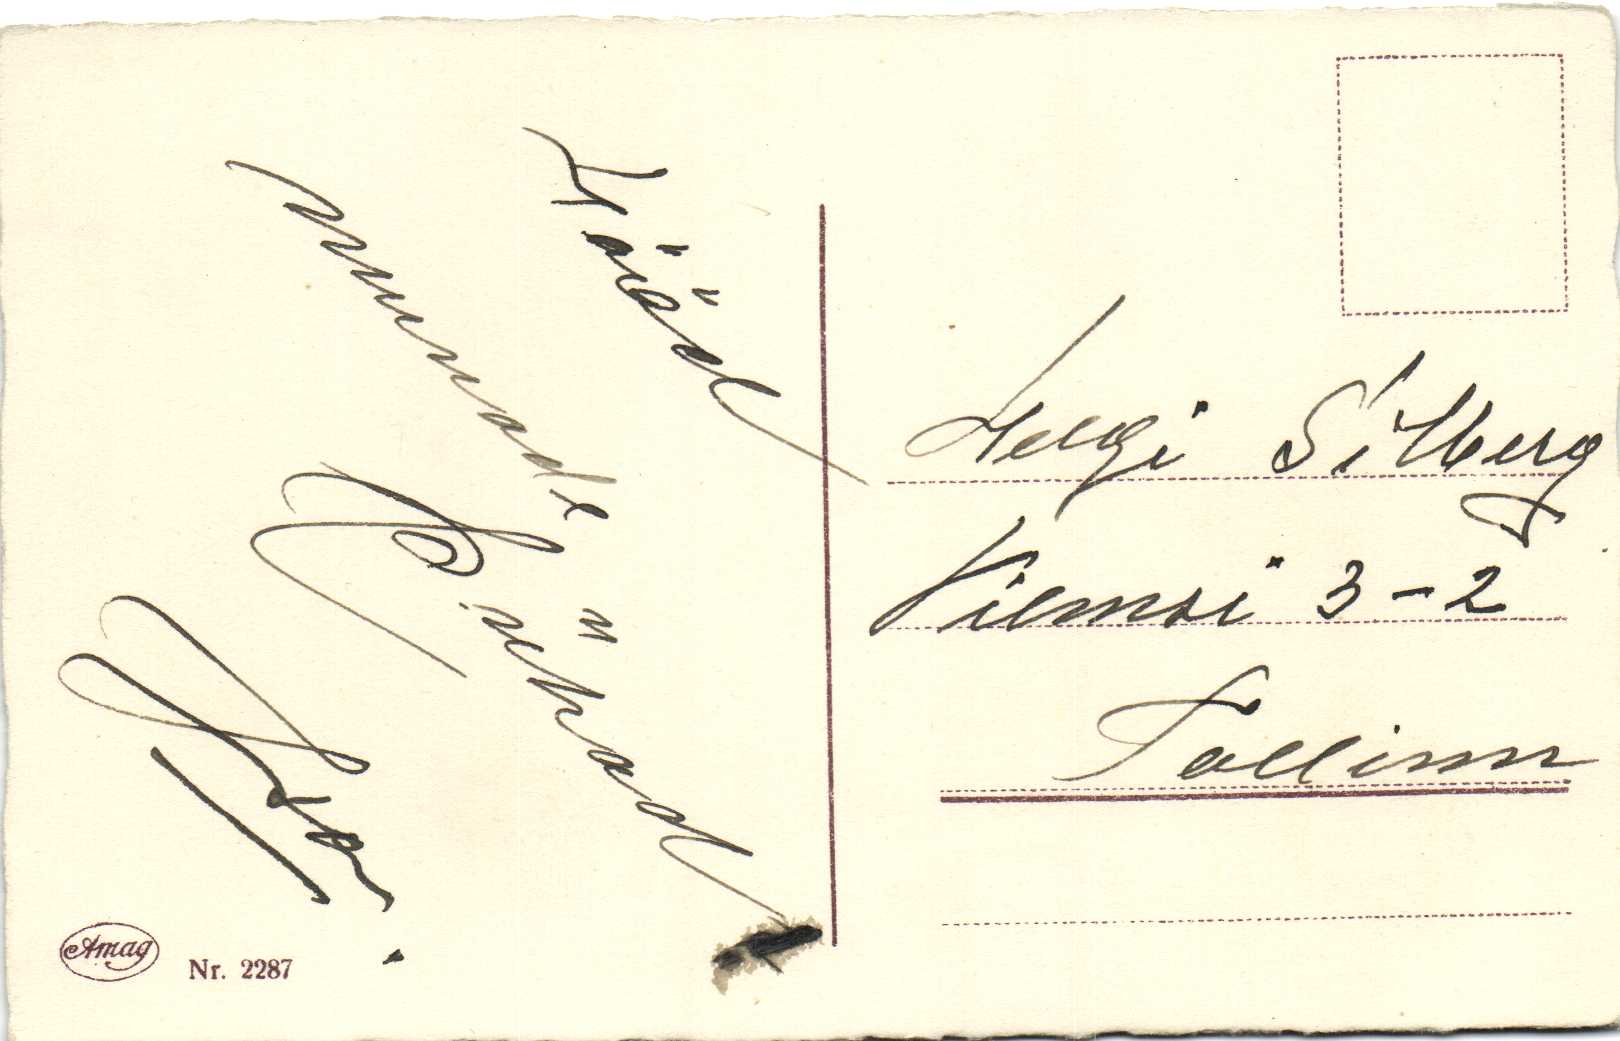 Häid
munade
Pühad
Helgi Silberg
Viemsi 3-2
Tallinn
Amag
Nr. 2287